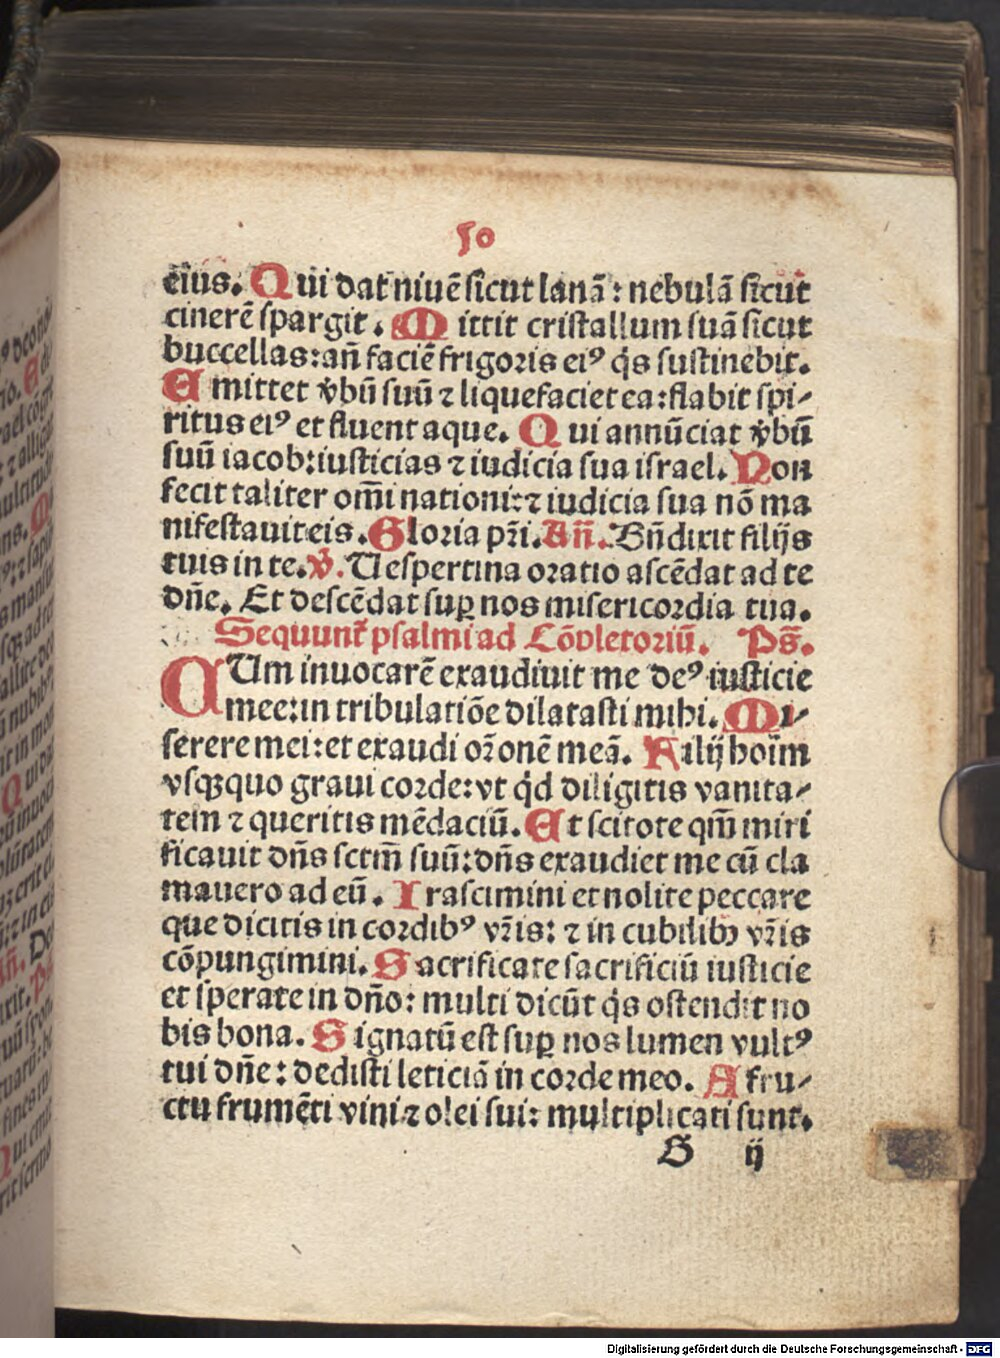 50
eius. Qui dat niuē sicut lanā: nebulā sicut
cinerē spargit. Mittit cristallum suā sicut
buccellas: añ faciē frigoris eiꝰ q̄s sustinebit.
Emittet v̄bū suū ⁊ liquefaciet ea: flabit spi⸗
ritus eiꝰ et fluent aque. Qui annūciat v̄bū
suū iacob: iusticias ⁊ iudicia sua israel. Non
fecit taliter om̄i nationi: ⁊ iudicia sua nō ma
nifestauit eis. Gloria pr̄i. Añ. Bn̄dixit filijs
tuis in te. v̄. Uespertina oratio ascēdat ad te
dn̄e. Et descēdat suꝑ nos misericordia tua.
Sequunt᷑ psalmi ad Cōpletoriū. Ps̄.
CUm inuocarē exaudiuit me deꝰ iusticie
mee: in tribulatiōe dilatasti mihi. Mi⸗
serere mei: et exaudi or̄onē meā. Filij hoīm
vsqꝫquo graui corde: vt q̇d diligitis vanita⸗
tem ⁊ queritis mēdaciū. Et scitote qm̄ miri
ficauit dn̄s sctm̄ suū: dn̄s exaudiet me cū cla
mauero ad eū. Irascimini et nolite peccare
que dicitis in cordibꝰ vr̄is: ⁊ in cubilibꝫ vr̄is
cōpungimini. Sacrificate sacrificiū iusticie
et sperate in dn̄o: multi dicūt q̄s ostendit no
bis bona. Signatū est suꝑ nos lumen vultꝰ
tui dn̄e: dedisti leticiā in corde meo. A fru⸗
ctu frumēti vini ⁊ olei sui: multiplicati sunt.
G ij
Digitalisierung gefördert durch die Deutsche Forschungsgemeinschaft - DFG